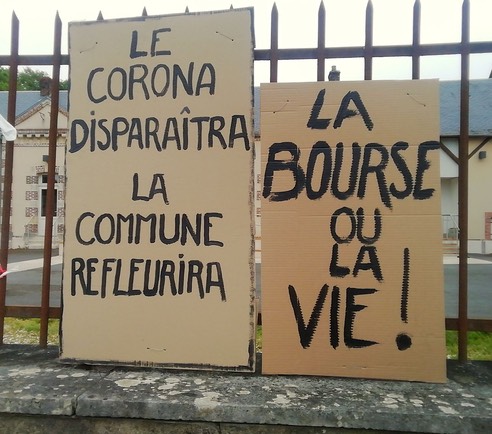 LE
CORONA
DISPARAÎTRA
LA
COMMUNE
REFLEURIRA
LA
BOURSE
OU
LA
VIE!